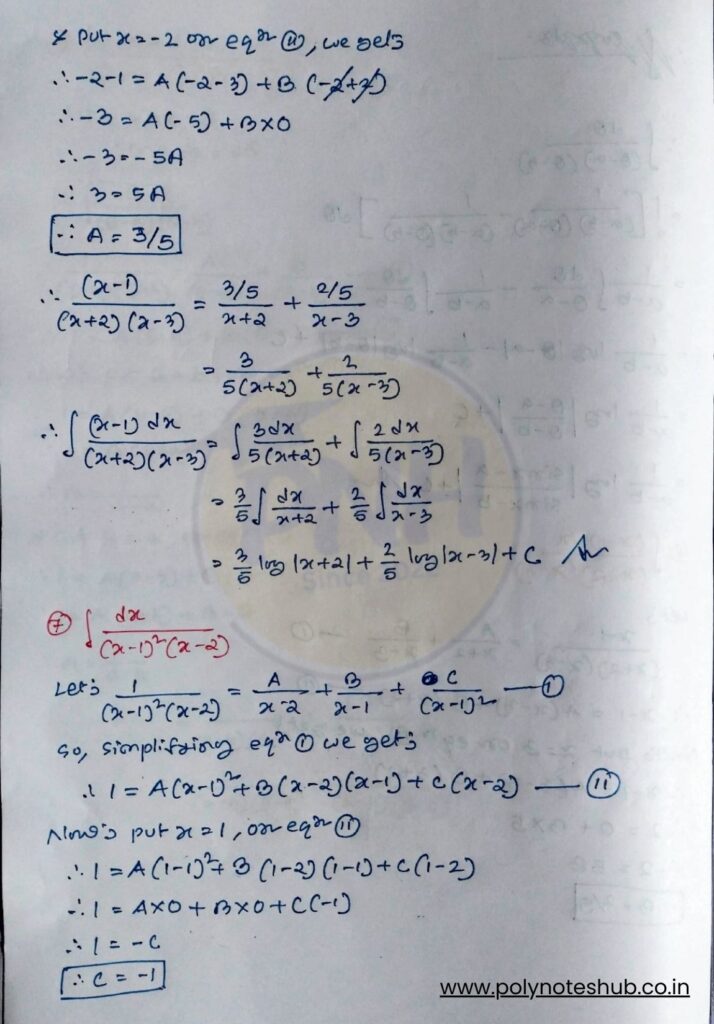 & put x = -2 on eqn (ii), we get;
∴ -2-1 = A(-2-3) + B (-2+2)
∴ -3 = A(-5) + B×0
∴ -3 = -5A
∴ 3 = 5A
∴ A = 3/5
∴ (x-1)/((x+2)(x-3)) = (3/5)/(x+2) + (2/5)/(x-3)
= 3/(5(x+2)) + 2/(5(x-3))
∴ ∫ (x-1) dx/((x+2)(x-3)) = ∫ 3dx/(5(x+2)) + ∫ 2dx/(5(x-3))
= 3/5 ∫ dx/(x+2) + 2/5 ∫ dx/(x-3)
= 3/5 log|x+2| + 2/5 log|x-3| + C
PNH
Since 2023
⑦ ∫ dx/((x-1)²(x-2))
Let; 1/((x-1)²(x-2)) = A/(x-2) + B/(x-1) + C/(x-1)² — (i)
So, simplifying eqn (i) we get;
∴ 1 = A(x-1)² + B(x-2)(x-1) + C(x-2) — (ii)
Now; put x = 1, on eqn (ii)
∴ 1 = A(1-1)² + B(1-2)(1-1) + C(1-2)
∴ 1 = A×0 + B×0 + C(-1)
∴ 1 = -C
∴ C = -1
www.polynoteshub.co.in